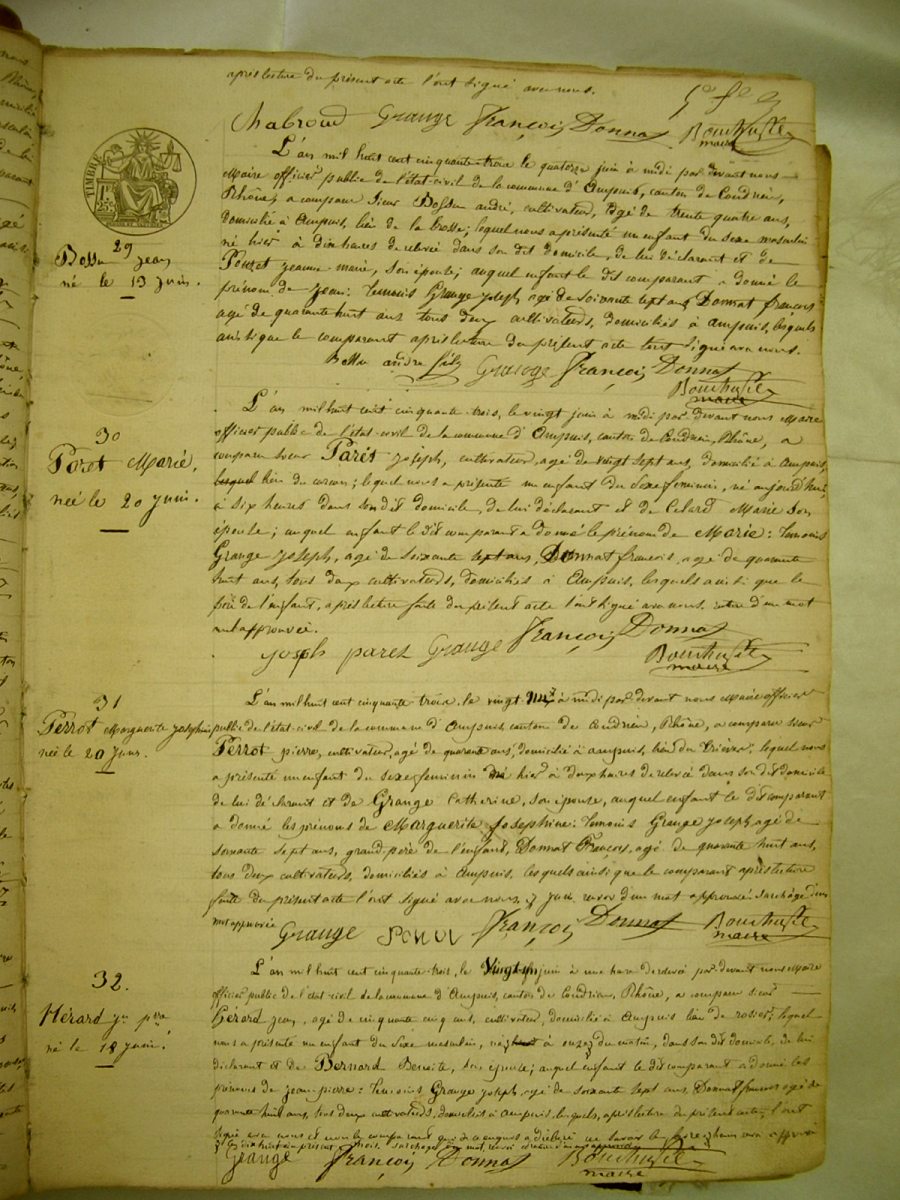 après lecture du présent acte l'ont signé avec nous.
Chabroud Grange François Donnat Bouchuste
maire
TIMBRE
L'an mil huit cent cinquante trois le quatorze juin à midi par devant nous
Maire officier public de l'état-civil de la commune d'Ampuis, canton de Condrieu,
Rhône, a comparu sieur Bossu andré, cultivateur, âgé de trente quatre ans,
domicilié à Ampuis, lieu de la brosse; lequel nous a présenté un enfant du sexe masculin
né hier à dix heures de relevée dans son dit domicile, de lui déclarant et de
Pouzet jeanne marie, son épouse; auquel enfant le dit comparant a donné le
prénom de jean: temoins Grange joseph, agé de soixante sept ans, Donnat françois
agé de quarante huit ans tous deux cultivateurs, domiciliés à ampuis, lesquels
ainsi que le comparant après lecture du présent acte l'ont signé avec nous.
29
Bossu Jean
né le 13 Juin.
Bossu andré Grange François Donnat
Bouchuste
maire
L'an mil huit cent cinquante trois, le vingt juin à midi par devant nous Maire
officier public de l'état-civil de la commune d'Ampuis, canton de Condrieu, Rhône, a
comparu sieur Paret joseph, cultivateur, agé de vingt sept ans, domicilié à Ampuis,
lieu de; lequel nous a présenté un enfant du sexe feminin, né aujourd'hui,
à six heures dans son dit domicile, de lui déclarant et de Celard Marie son
épouse; auquel enfant le dit comparant a donné le prénom de Marie: temoins
Grange joseph, agé de soixante sept ans, Donnat françois, agé de quarante
huit ans, tous deux cultivateurs, domiciliés à Ampuis, lesquels ainsi que le
père de l'enfant, après lecture faite du présent acte l'ont signé avec nous. rature d'un mot
nul approuvée.
30
Paret Marie,
née le 20 Juin.
joseph paret Grange François Donnat
Bouchuste
maire
L'an mil huit cent cinquante trois, le vingt à midi par devant nous Maire officier
public de l'état-civil de la commune d'Ampuis canton de Condrieu, Rhône, a comparu sieur
Perrot pierre, cultivateur, agé de quarante ans, domicilié à ampuis, lieu du; lequel nous
a présenté un enfant du sexe feminin né hier à deux heures de relevée dans son dit domicile
de lui déclarant et de Grange Catherine, son épouse, auquel enfant le dit comparant
a donné les prénoms de Marguerite Josephine: temoins Grange joseph agé de
soixante sept ans, grand-père de l'enfant, Donnat François, agé de quarante huit ans,
tous deux cultivateurs, domiciliés à Ampuis, lesquels ainsi que le comparant après lecture
faite du présent acte l'ont signé avec nous. d'un mot approuvé. Surchage d'un
mot approuvée
31
Perrot Marguerite Josephine
née le 20 Juin.
Grange François Donnat Bouchuste
maire
L'an mil huit cent cinquante trois, le juin à une heure de relevée par devant nous Maire
officier public de l'état-civil de la commune d'Ampuis, canton de Condrieu, Rhône, a comparu sieur
Gérard jean, agé de cinquante cinq ans, cultivateur, domicilié à Ampuis lieu de rosier; lequel
nous a présenté un enfant du sexe masculin, né à onze du matin, dans son dit domicile, de lui
déclarant et de Bernard Benoite, son épouse; auquel enfant le dit comparant a donné les
prénoms de jean pierre: temoins Grange joseph, agé de soixante sept ans, Donnat françois agé de
quarante huit ans, tous deux cultivateurs, domiciliés à Ampuis, lesquels, après lecture du présent acte, l'ont
signé avec nous et non le comparant qui de ce enquis a déclaré ne savoir le faire
32.
Hérard jn prre
né le 18 Juin.
Grange François Donnat Bouchuste
maire